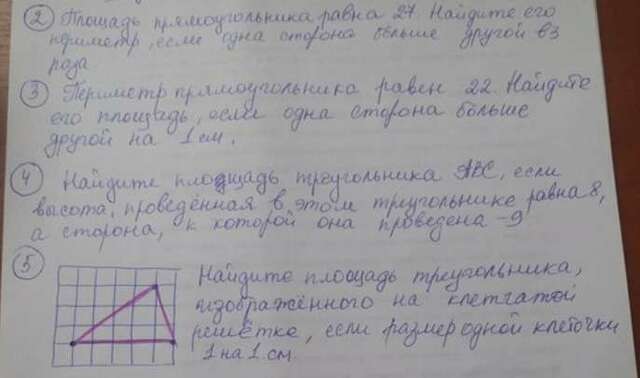 ② Площадь прямоугольника равна 27. Найдите его
периметр, если одна сторона больше другой в 3
раза
③ Периметр прямоугольника равен 22. Найдите
его площадь, если одна сторона больше
другой на 1 см.
④ Найдите площадь треугольника ABC, если
высота, проведённая в этом треугольнике равна 8,
а сторона, к которой она проведена - 9
⑤ Найдите площадь треугольника,
изображённого на клетчатой
решётке, если размер одной клеточки
1 на 1 см.